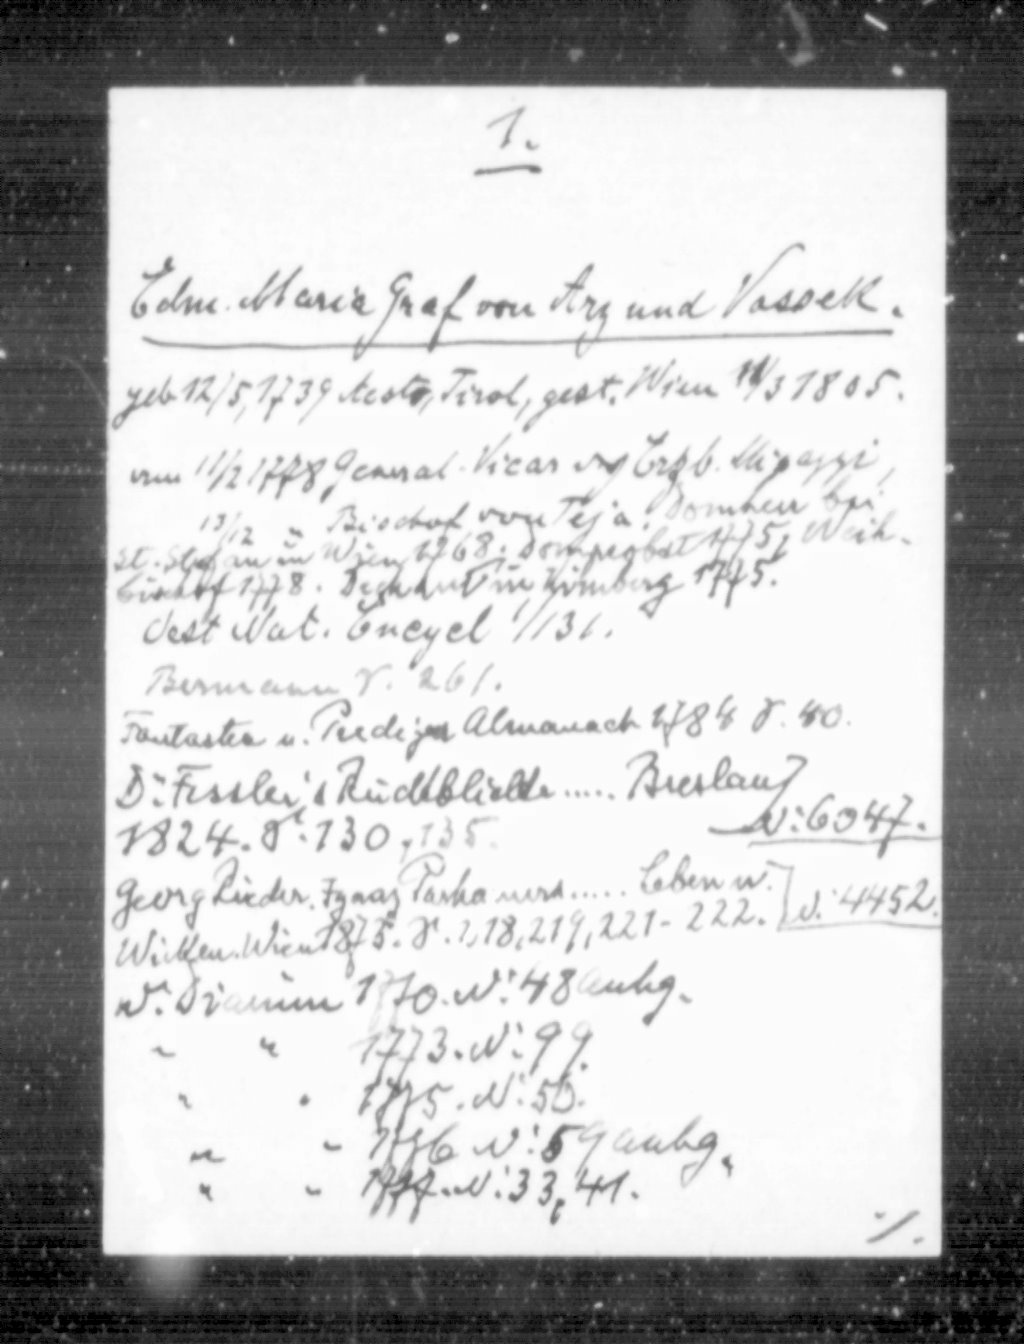 1.
Edm. Maria Graf von Arz und Vassek.
geb 12/5, 1739 Tirol, gest. Wien 3 1805.
1778 General-Vicar Erzb. Migazzi,
13/12 " Bischof von Teja. Domherr bei
St. Stefan in Wien 1768. Domprobst 1775, Weih-
bischof 1778. Dechant in Kirnberg 1775.
Oest Nat. Encycl 1/131.
Bermann S. 261.
Fantasten u. Prediger Almanach 1784 S. 40.
Dr. Fessler's Rückblicke ..... Breslau
1824. S. 130, 135. N: 6047.
Georg Rieder. Ignaz Parhamers ..... Leben u.
Wirken. Wien 1875. S. 2, 18, 219, 221-222. N. 4452.
W. Diarium 1770. N: 48 Anhg.
" " 1773. N: 99.
" " 1775. N: 50.
" " 1776 N: 59 Anhg.
" " 1777. N: 33, 41.
./.